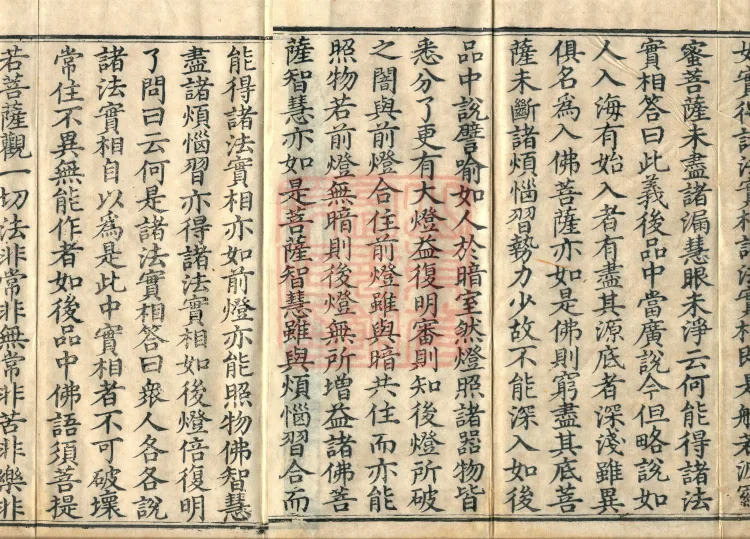 蜜菩薩未盡諸漏慧眼未淨云何能得諸法
實相答曰此義後品中當廣說今但略說如
人入海有始入者有盡其源底者深淺雖異
俱名為入佛菩薩亦如是佛則窮盡其底菩
薩未斷諸煩惱習勢力少故不能深入如後
品中說譬喻如人於暗室然燈照諸器物皆
悉分了更有大燈益復明審則知後燈所破
之闇與前燈合住前燈雖與暗共住而亦能
照物若前燈無暗則後燈無所增益諸佛菩
薩智慧亦如是菩薩智慧雖與煩惱習合而
能得諸法實相亦如前燈亦能照物佛智慧
盡諸煩惱習亦得諸法實相如後燈倍復明
了問曰云何是諸法實相答曰衆人各各說
諸法實相自以為是此中實相者不可破壞
常住不異無能作者如後品中佛語須菩提
若菩薩觀一切法非常非無常非苦非樂非